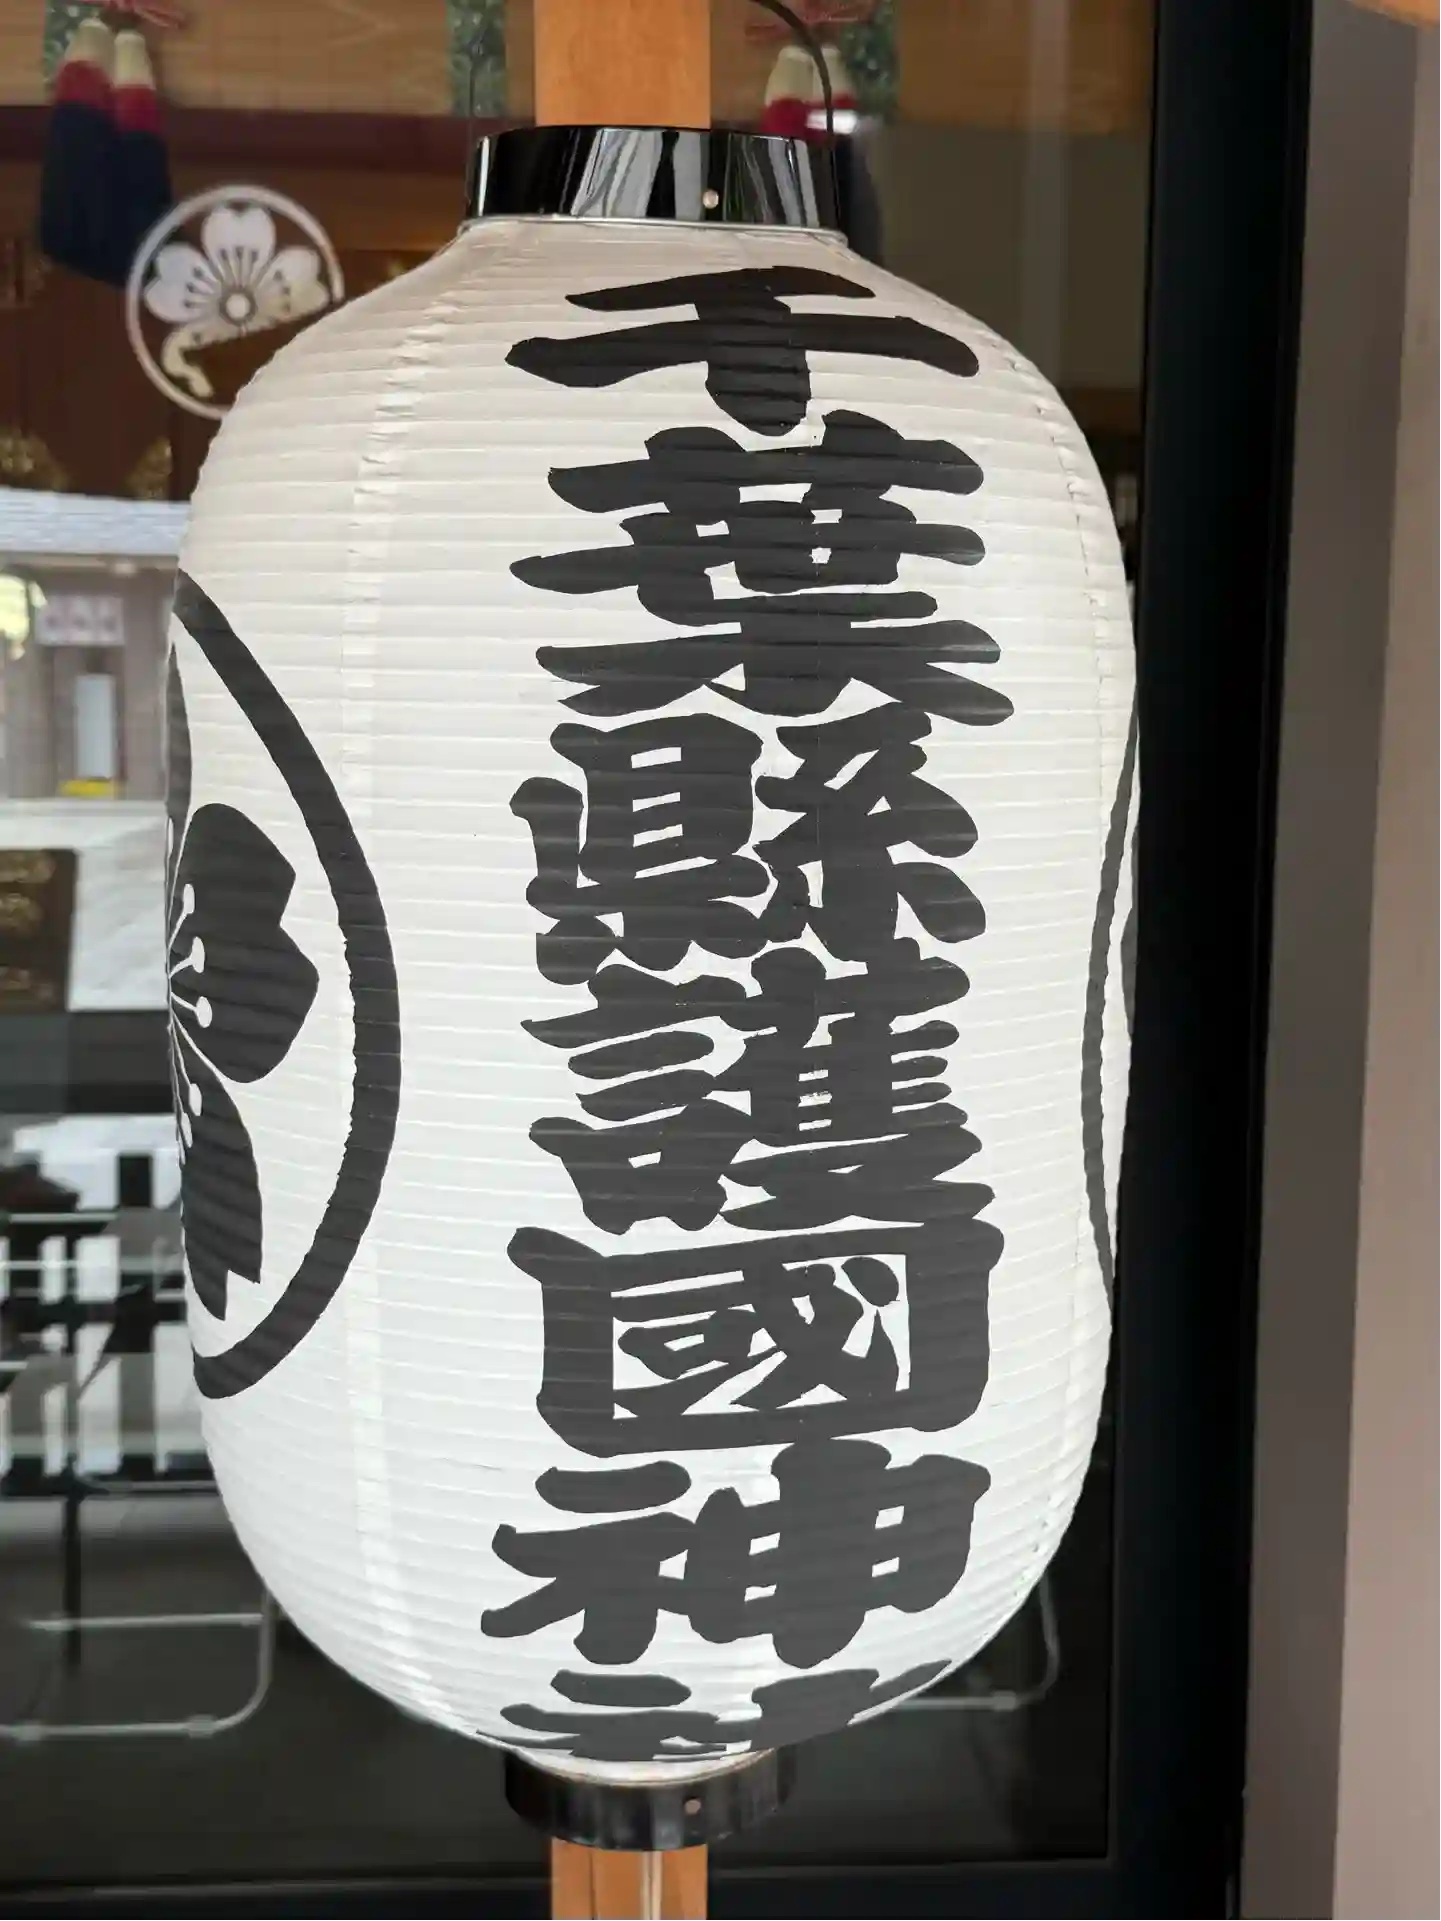 千葉縣護國神社